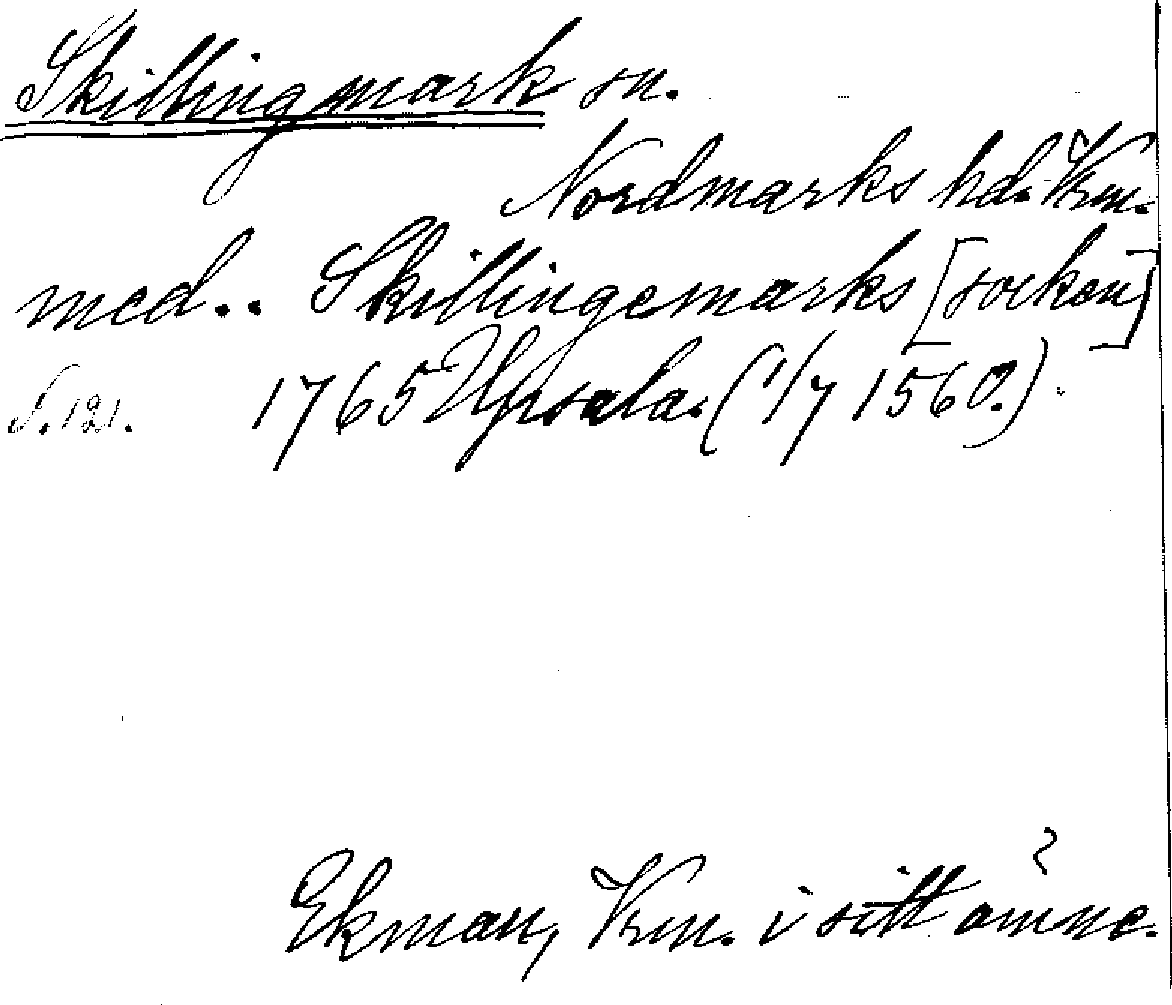 Skillingmark sn.
Nordmarks hd. Vrm.
med.. Skillingemarks [socken]
S. 121. 1765 Upsala. (1/7 1560.)
Ekman, Vrm. i sitt ämne.